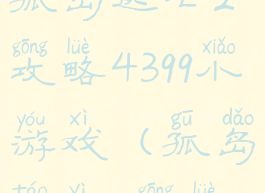 gōng lüè xiǎo
攻略4399小
yóu xì gū dǎo
游戏（孤岛
gōng lüè